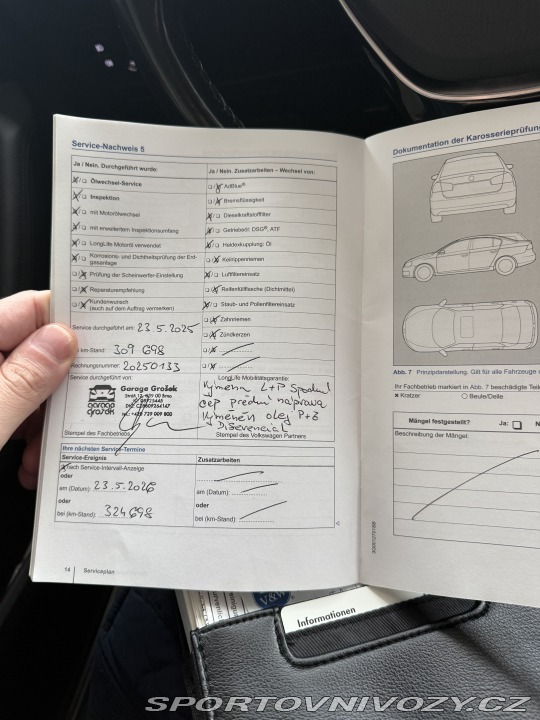 Service-Nachweis 5
Ja / Nein. Durchgeführt wurde:
Ölwechsel-Service
Inspektion
mit Motorölwechsel
mit erweitertem Inspektionsumfang
LongLife Motoröl verwendet
Korrosions- und Dichtheitsprüfung der Erdgasanlage
Prüfung der Scheinwerfer-Einstellung
Reparaturempfehlung
Kundenwunsch
(auch auf dem Auftrag vermerken)
Service durchgeführt am: 23.5.2025
km-Stand: 309 698
Rechnungsnummer: 20250133
Service durchgeführt von:
Garage Grošek
garage
grošek
Stempel des Fachbetriebs
Ja / Nein. Zusatzarbeiten – Wechsel von:
AdBlue®
Bremsflüssigkeit
Dieselkraftstofffilter
Getriebeöl: DSG®, ATF
Haldexkupplung: Öl
Keilrippenriemen
Luftfiltereinsatz
Reifenfüllflasche (Dichtmittel)
Staub- und Pollenfiltereinsatz
Zahnriemen
Zündkerzen
LongLife Mobilitätsgarantie:
Výměna L+P spodní
čep přední náprava
Výměněn olej P+Z
Diferencial
Stempel des Volkswagen Partners
Ihre nächsten Service-Termine
Service-Ereignis
Zusatzarbeiten
nach Service-Intervall-Anzeige
oder
am (Datum): 23.5.2026
am (Datum):
oder
oder
bei (km-Stand): 324698
bei (km-Stand):
14 Serviceplan
Dokumentation der Karosserieprüfung
Abb. 7 Prinzipdarstellung: Gilt für alle Fahrzeuge
Ihr Fachbetrieb markiert in Abb. 7 beschädigte
× Kratzer ○ Beule/Delle
Mängel festgestellt? Ja:
Beschreibung der Mängel:
Informationen
SPORTOVNIVOZY.CZ